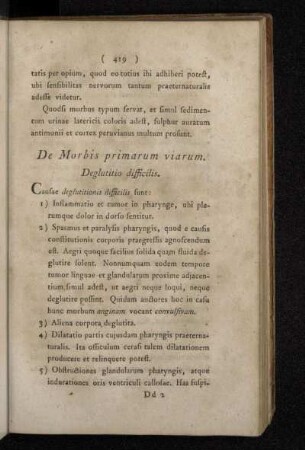 ( 419 )
tatis per opium, quod eo totius ibi adhiberi potest,
ubi sensibilitas nervorum tantum praeternaturalis
adesse videtur.
Quodsi morbus typum servat, et simul sedimen-
tum urinae lateritii coloris adest, sulphur auratum
antimonii et cortex peruvianus multum prosunt.
De Morbis primarum viarum.
Deglutitio difficilis.
Causae deglutitionis difficilis sunt:
1) Inflammatio et tumor in pharynge, ubi ple-
rumque dolor in dorso sentitur.
2) Spasmus et paralysis pharyngis, quod e causis
constitutionis corporis praegressis agnoscendum
est. Aegri quoque facilius solida quam fluida de-
glutire solent. Nonnunquam eodem tempore
tumor linguae et glandularum proxime adjacen-
tium, simul adest, ut aegri neque loqui, neque
deglutire possint. Quidam auctores hoc in casu
hunc morbum anginam vocant convulsivam.
3) Aliena corpora deglutita.
4) Dilatatio partis cujusdam pharyngis praeterna-
turalis. Ita officulum cerasi talem dilatationem
producere et relinquere potest.
5) Obstructiones glandularum pharyngis, atque
indurationes oris ventriculi callosae. Has suspi-
Dd 2